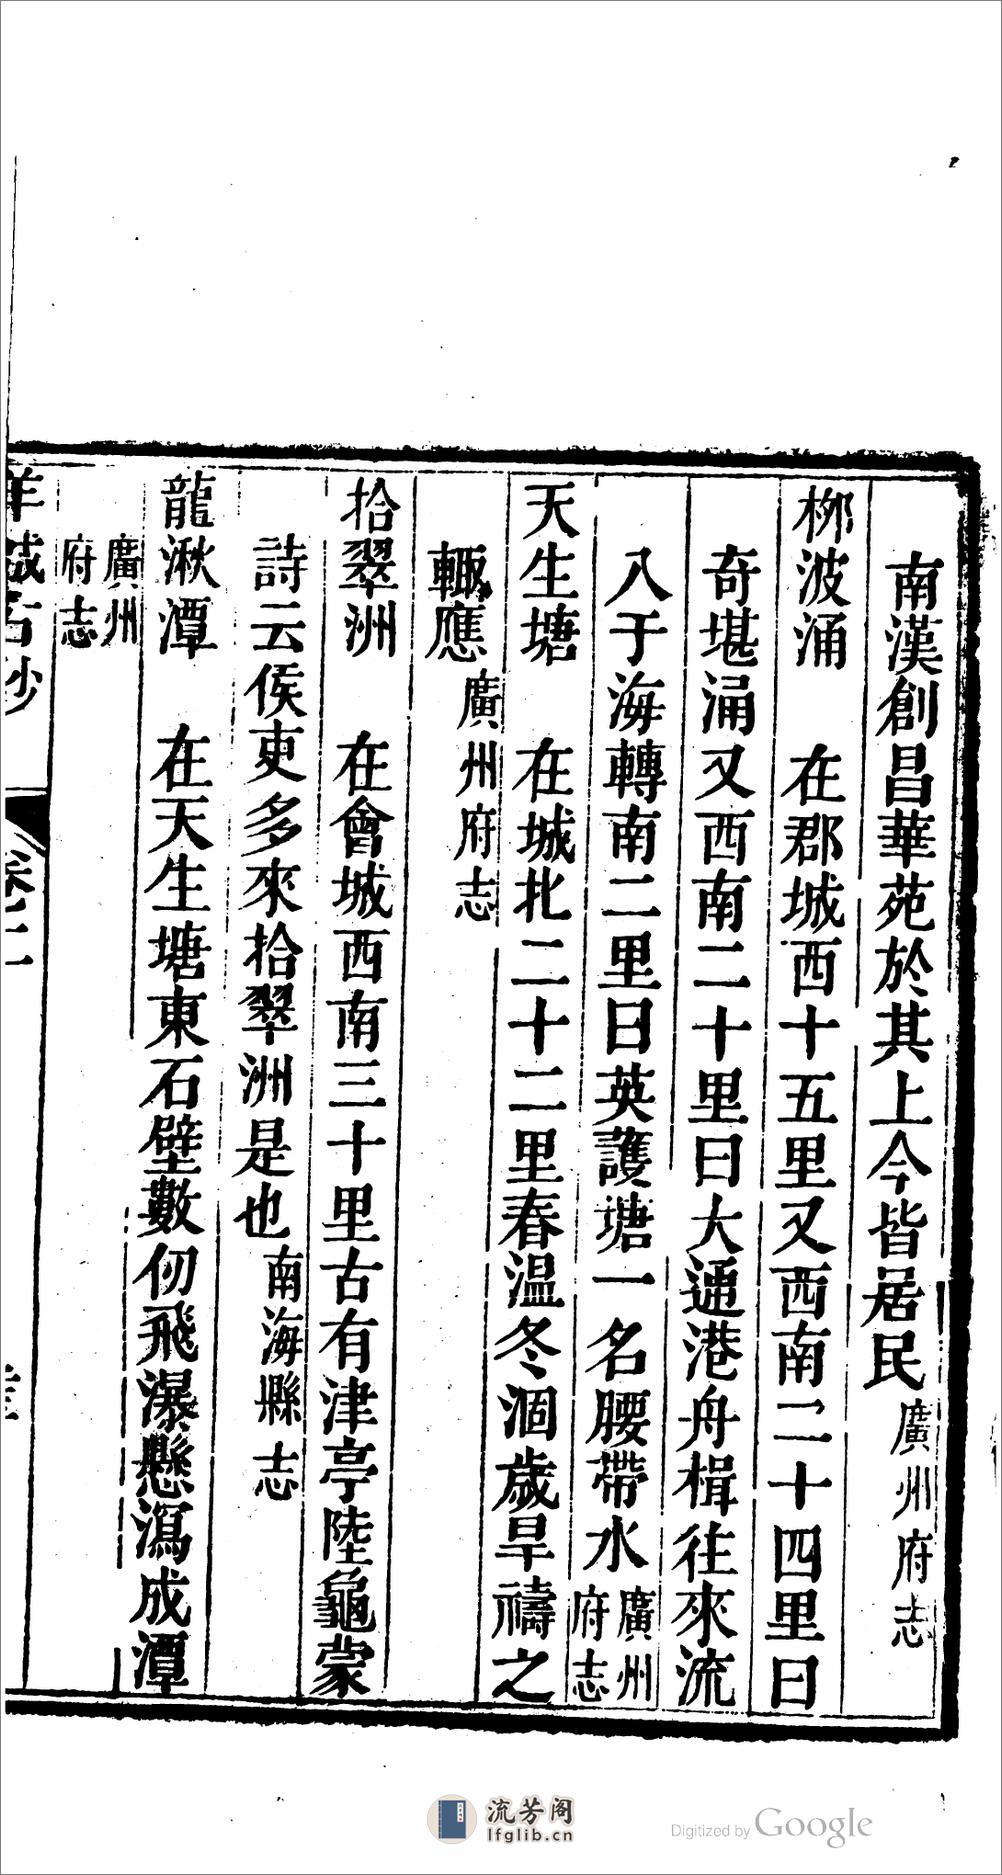 南漢創昌華苑於其上今皆居民廣州府志
柳波涌　在郡城西十五里又西南二十四里曰
奇堪涌又西南二十里曰大通港舟楫往來流
入于海轉南二里曰英護塘一名腰帶水廣州府志
天生塘　在城北二十二里春温冬涸歲旱禱之
輙應廣州府志
拾翠洲　在會城西南三十里古有津亭陸龜蒙
詩云侯吏多來拾翠洲是也南海縣志
龍湫潭　在天生塘東石壁數仞飛瀑懸瀉成潭
廣州府志
羊城古鈔
卷二
流芳阁
lfglib.cn
Digitized by Google